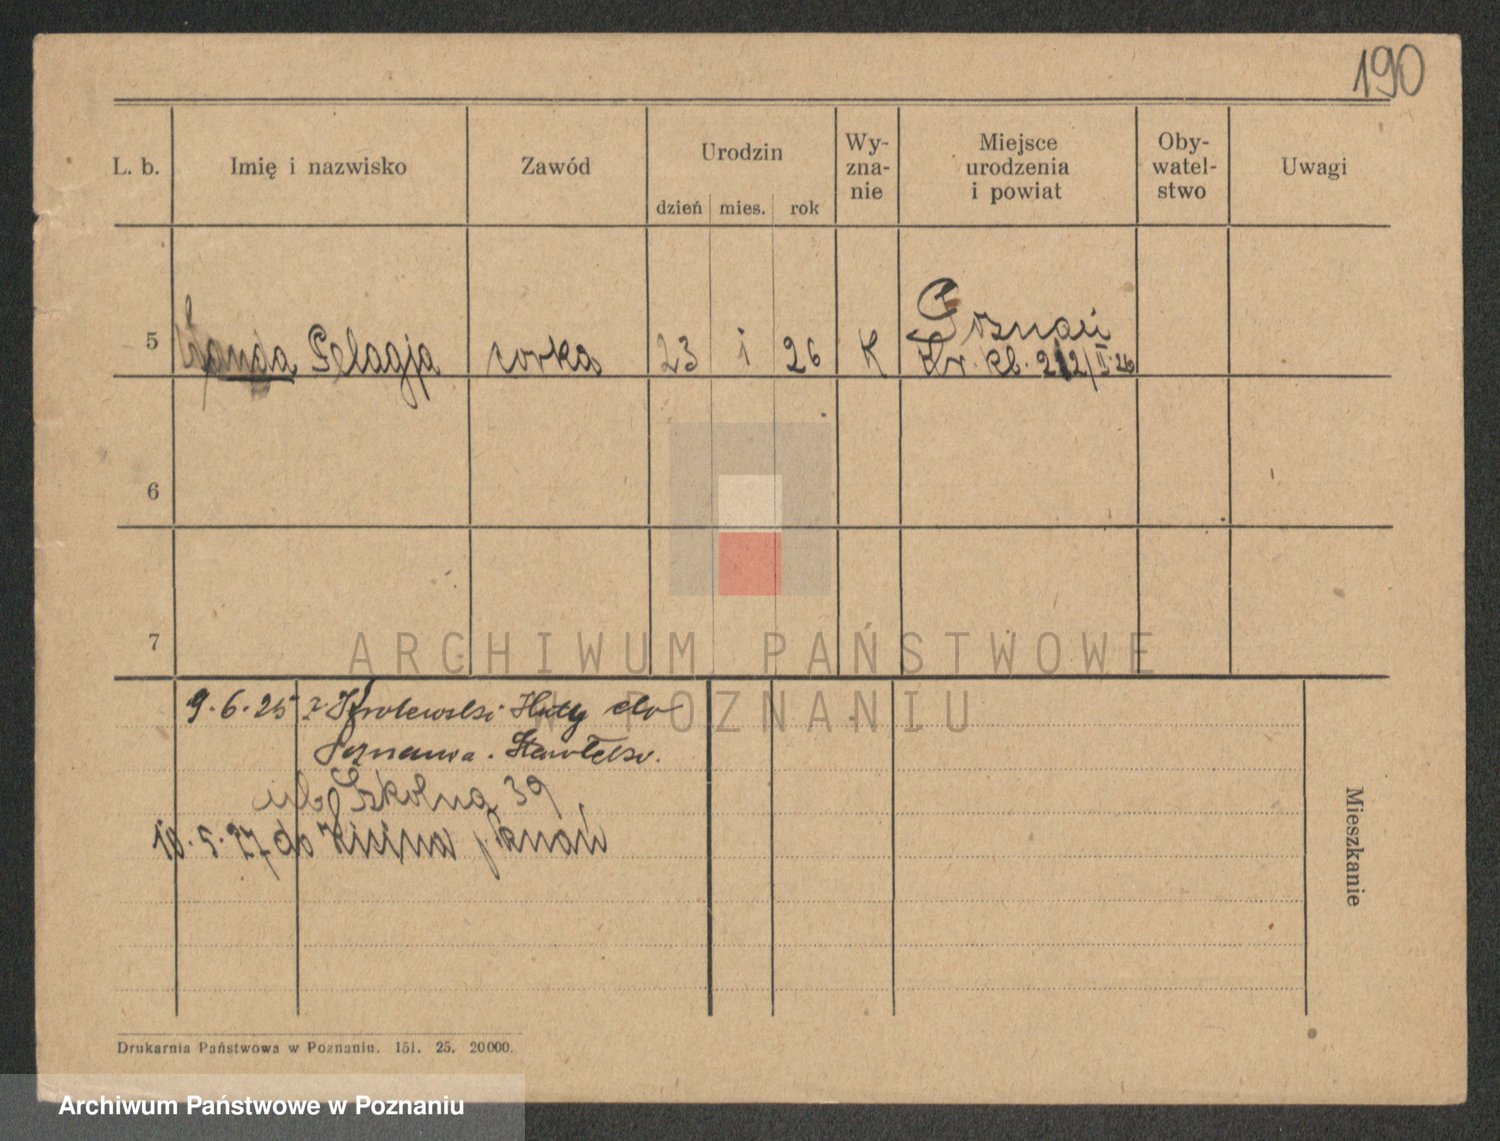 190
L. b. Imię i nazwisko Zawód Urodzin dzień mies. rok Wy-zna-nie Miejsce urodzenia i powiat Oby-watel-stwo Uwagi
Poznań
5 Wanda Pelagja corka 23 i 26 K Kr. kb. 212/II 26
6
7
ARCHIWUM PAŃSTWOWE
W POZNANIU
9.6.25 z Krolewski Huty do
Poznania.
Szkolna 39
18.5.27 do
Mieszkanie
Drukarnia Państwowa w Poznaniu. 151. 25. 20000.
Archiwum Państwowe w Poznaniu